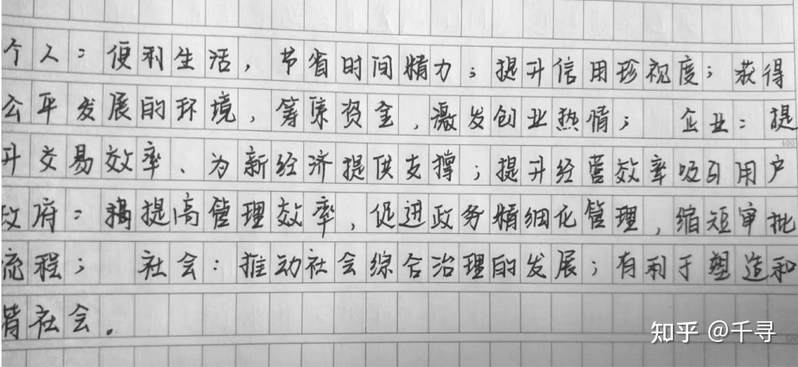 个人：便利生活，节省时间精力；提升信用珍视度；获得
公平发展的环境，筹集资金，激发创业热情；  企业：提
升交易效率、为新经济提供支撑；提升经营效率吸引用户
政府：提高管理效率，促进政务精细化管理，缩短审批
流程；  社会：推动社会综合治理的发展；有利于塑造和
谐社会。
知乎 @千寻